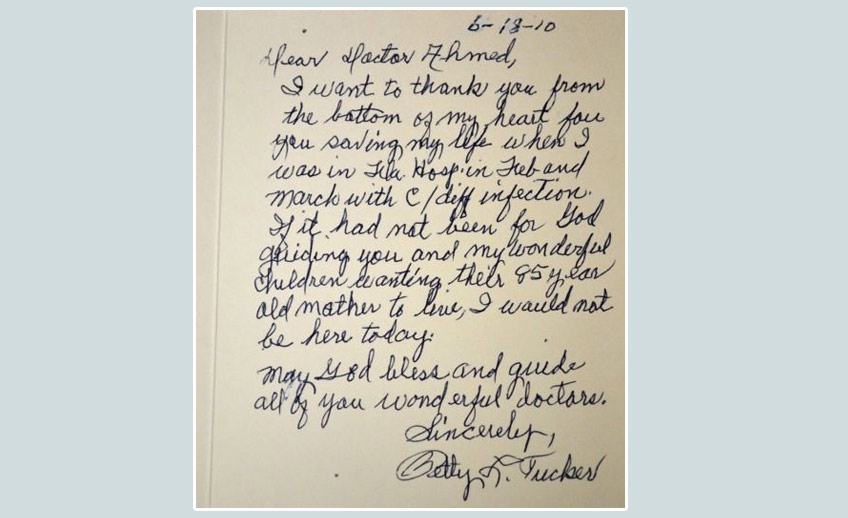 6-18-10
Dear Doctor Ahmed,
I want to thank you from
the bottom of my heart for
you saving my life when I
was in Fla. Hosp. in Feb and
March with C/diff infection.
If it had not been for God
guiding you and my wonderful
children wanting their 85 year
old mother to live, I would not
be here today.
May God bless and guide
all of you wonderful doctors.
Sincerely,
Betty L. Tucker